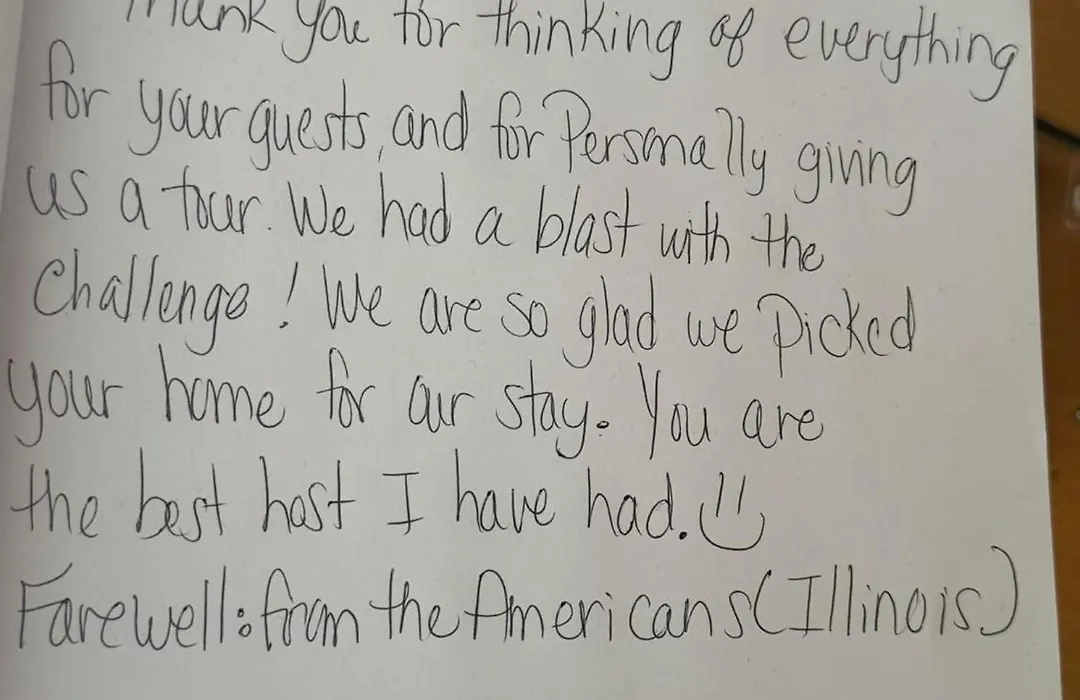 Thank you for thinking of everything
for your guests, and for Personally giving
us a tour. We had a blast with the
Challenge! We are so glad we Picked
your home for our stay. You are
the best host I have had.
Farewell: from the Americans (Illinois)